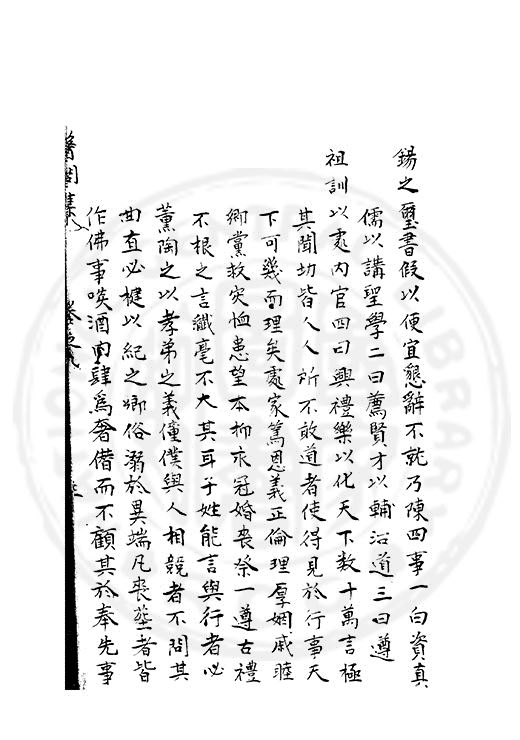 錫之璽書假以便宜懇辭不就乃陳四事一曰資真
儒以講聖學二曰薦賢才以輔治道三曰遵
祖訓以處內官四曰興禮樂以化天下数十萬言極
其聞切皆人人所不敢道者使得見於行事天
下可幾而理矣處家篤恩義正倫理厚姻戚睦
鄉黨救灾恤患望本抑末冠婚喪祭一遵古禮
不根之言纖毫不大其耳子姓能言與行者必
薰陶之以孝弟之義僮僕與人相競者不問其
曲直必楗以紀之鄉俗溺於異端凡喪塟者皆
作佛事啖酒肉肆為奢僣而不顧其於奉先事
醫閭集 卷之